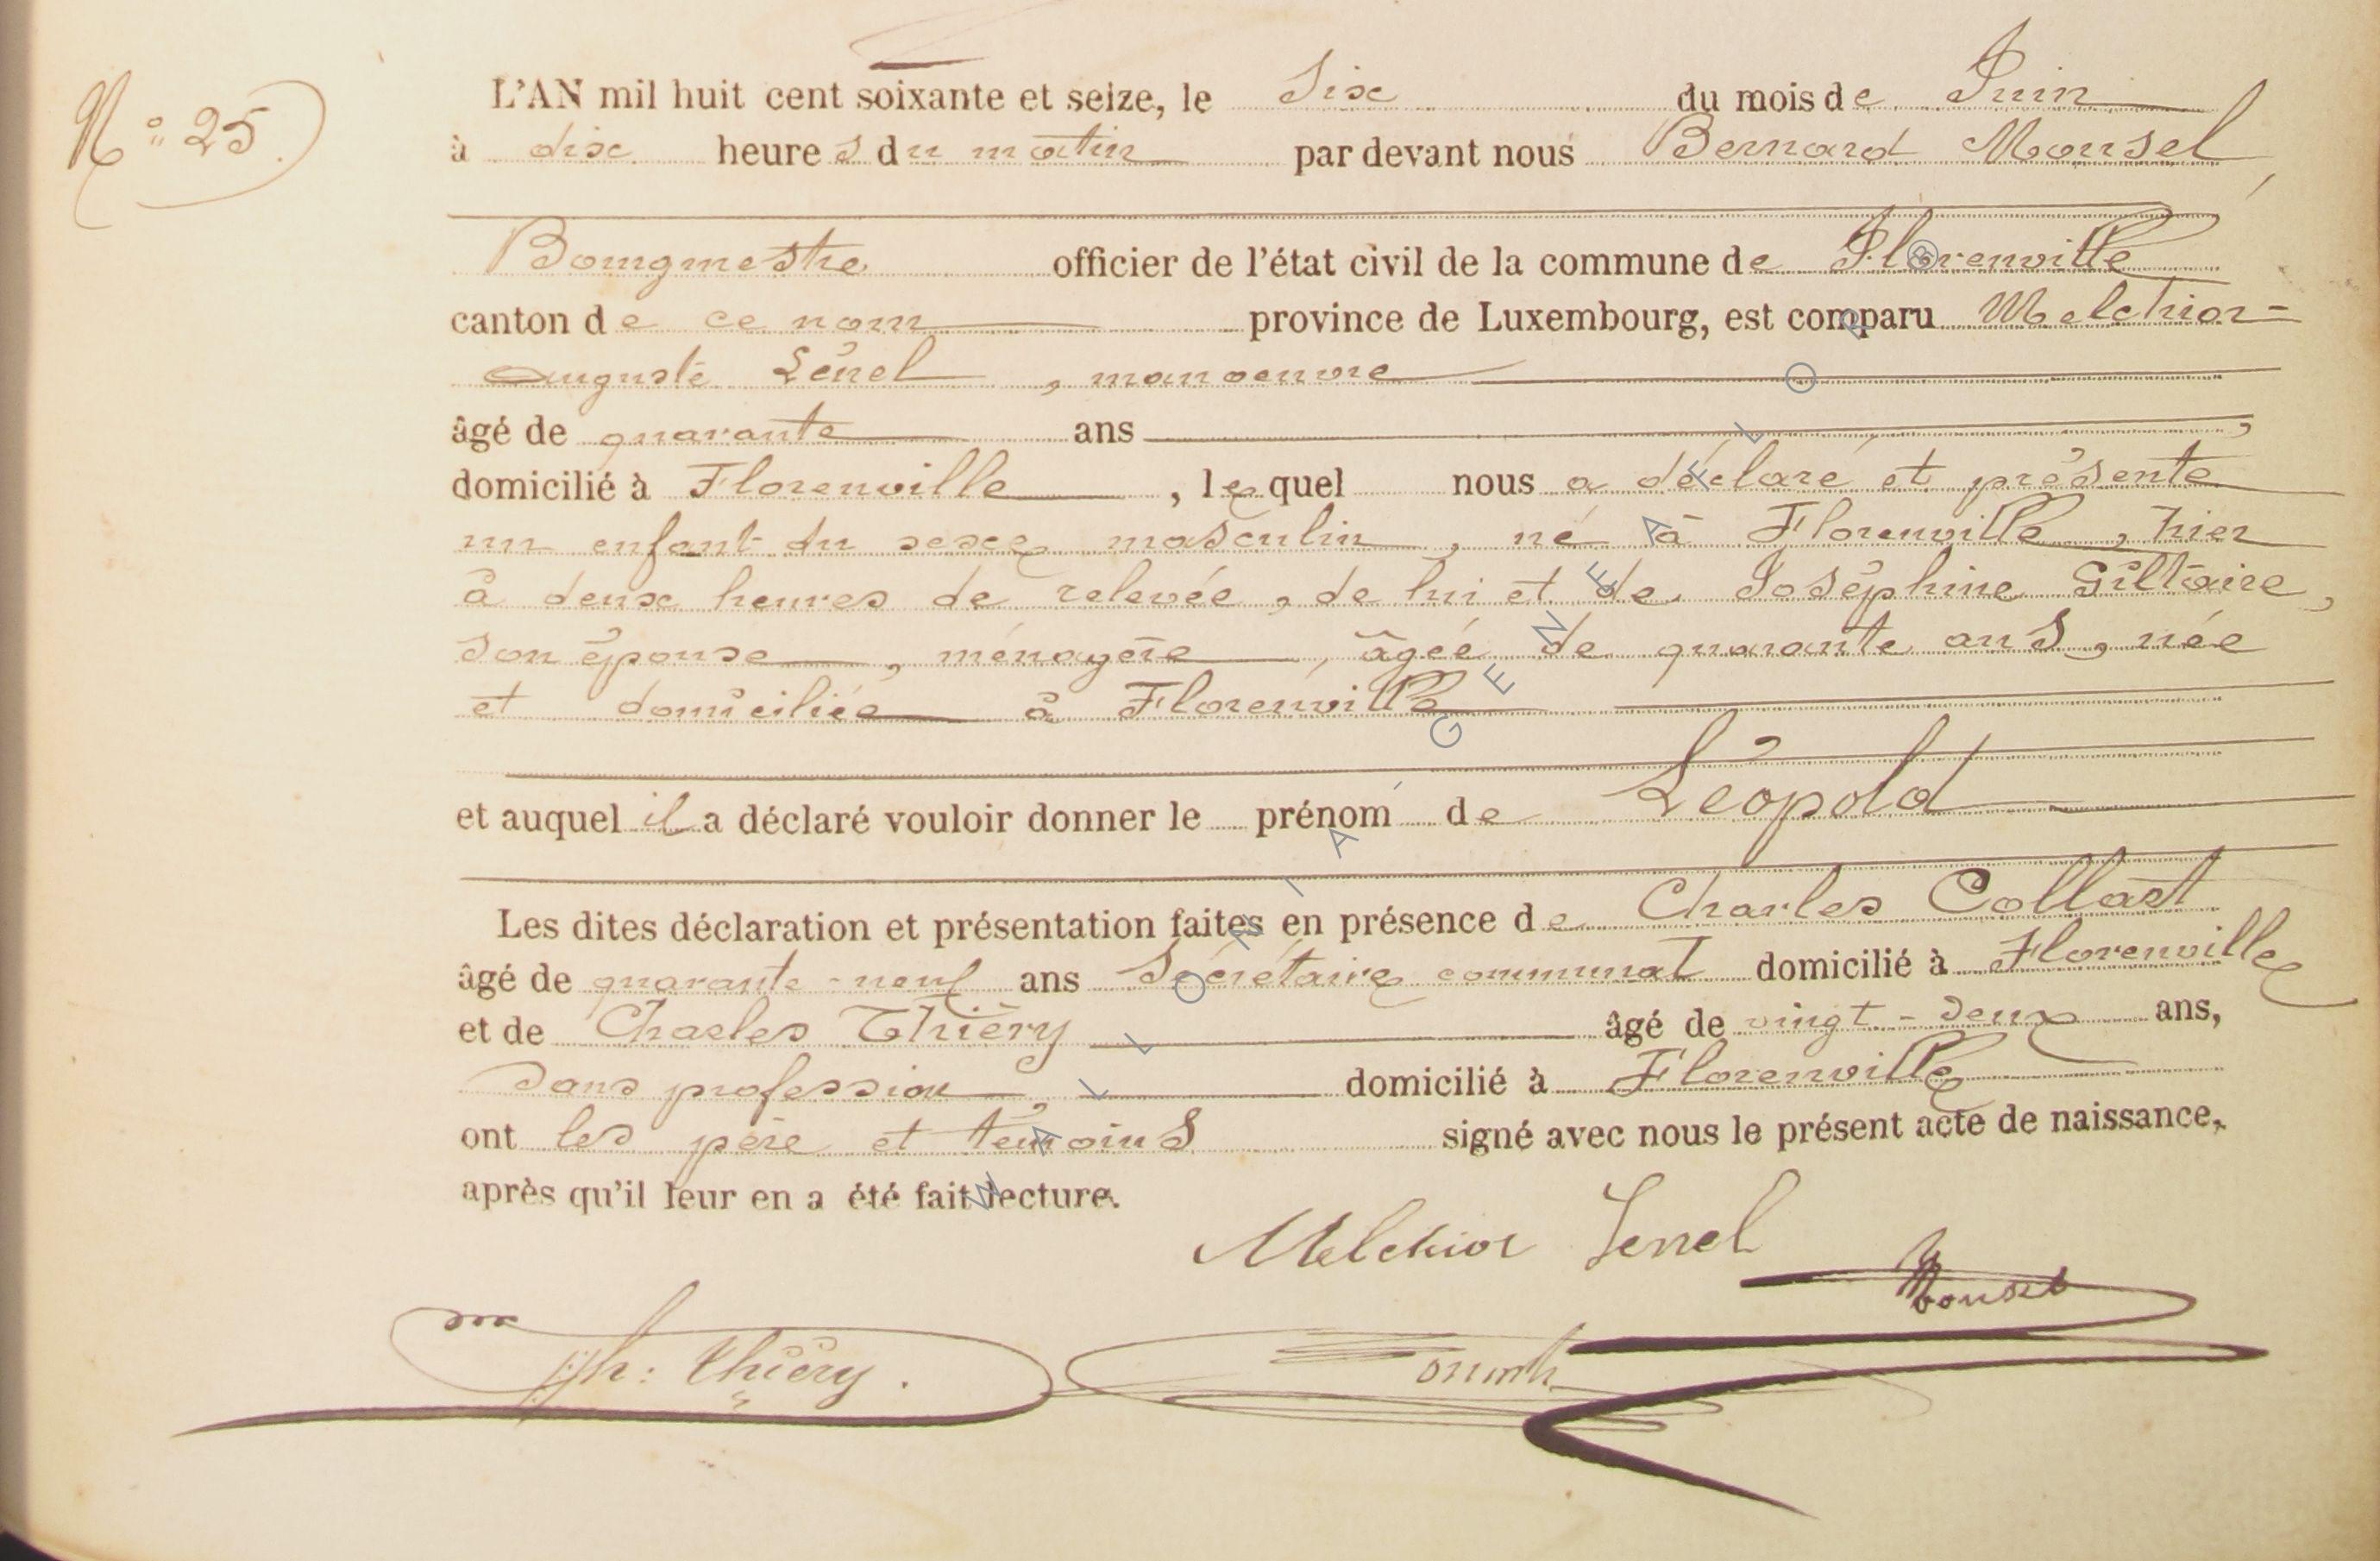 N° 25
L'AN mil huit cent soixante et seize, le Six du mois de Juin
à dix heures du matin par devant nous Bernard Mousel,
Bourgmestre officier de l'état civil de la commune de Florenville
canton de ce nom province de Luxembourg, est comparu Melchior-
Auguste Lénel, manoeuvre
âgé de quarante ans,
domicilié à Florenville, lequel nous a déclaré et présenté
un enfant du sexe masculin, né à Florenville, hier
à deux heures de relevée, de lui et de Joséphine Giltaire,
son épouse, ménagère, âgée de quarante ans, née
et domiciliée à Florenville
et auquel il a déclaré vouloir donner le prénom de Léopold
Les dites déclaration et présentation faites en présence de Charles Collart
âgé de quarante-neuf ans Sécrétaire communal domicilié à Florenville
et de Charles Thiéry âgé de vingt-deux ans,
sans profession, domicilié à Florenville
ont les père et témoins signé avec nous le présent acte de naissance,
après qu'il leur en a été fait lecture.
Melchior Lenel
Mousel
Ch: Thiéry.